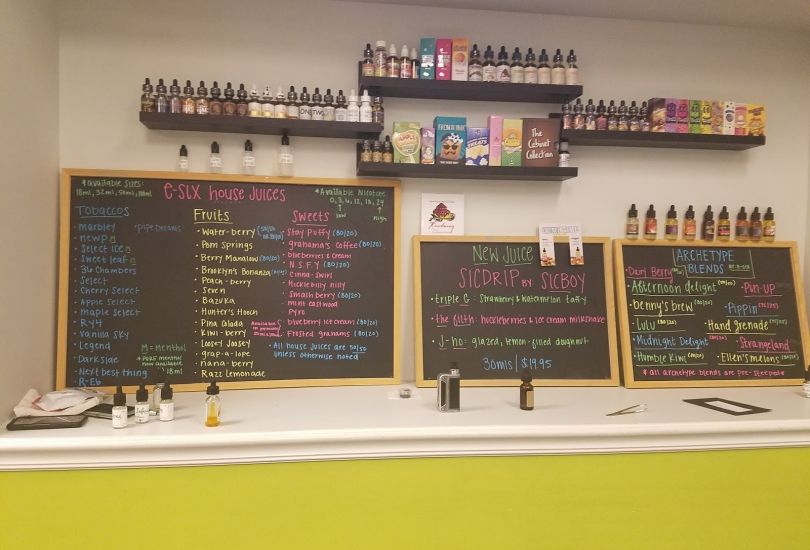 *Available Sizes:
e-SLX house juices
*Available Nicotine:
0, 3, 6, 12, 18, 24
low
high
Tobaccos
• marbley
• newp
• Select ice
• Sweet leaf
• 36 Chambers
• Select
• Cherry Select
• Apple Select
• Maple Select
• RY4
• Vanilla Sky
• Legend
• Darkside
• Next best thing
• R-Eb
•pipe Dreams
M=Menthol
* pure menthol
now available
18ml
Fruits
• Water-berry
• Pom Springs
• Berry Manalow (80/20)
• Brooklyn's Bonanza
• Peach-berry
• Seven
• Bazuka
• Hunter's Hooch
• Pina Colada
• Kiwi-berry
• Loosey Joosey
• grap-a-lope
• nana-berry
• Razz Lemonade
Sweets
• Stay Puffy (80/20)
• grahama's Coffee (80/20)
• blueberries & Cream
• N.S.F.Y (80/20)
• cinna-swirl
• Huckle billy nilly
• Smash berry (80/20)
• mint eastwood
• Pyro
• blueberry ice cream (80/20)
• Frosted grahams (80/20)
• All house juices are 50/50
unless otherwise noted
New Juice
SICDRIP BY SICBOY
• triple C: Strawberry & Watermelon taffy
• the filth: huckleberries & ice cream milkshake
• J-no: glazed, lemon-filled doughnut
30mls / $19.95
ARCHETYPE
BLENDS
• Dairi Berry
• Afternoon delight
• Pun-up
• benny's brew
• Pippin
• Lulu
• Hand grenade
• Midnight Delight
• Strangeland
• Humble Kiwi
• Ellen's melons
* all archetype blends are pre-steeped
The
Cabinet
Collection
TREATS